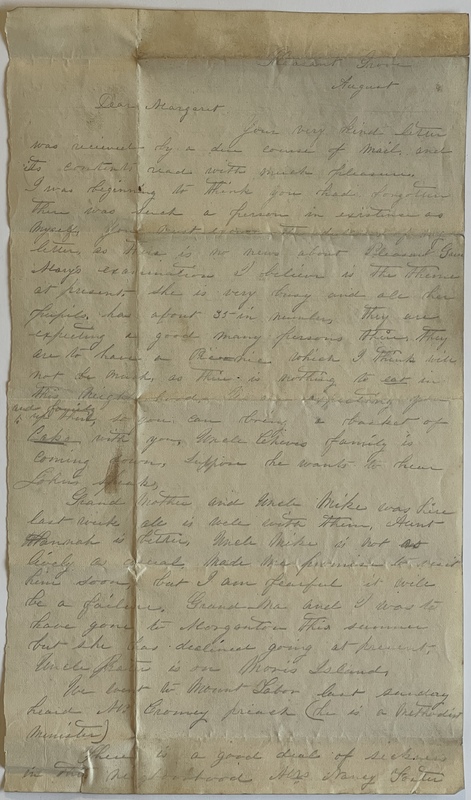 Pleasant Grove
August
Dear Margaret
Your very kind letter
was received by a due course of mail, and
its contents read with much pleasure.
I was beginning to think you had forgotten
there was such a person in existence as
myself, you must
letter, as there is no news about Pleasant Grove
Mary's examinations I believe is the theme
at present, she is very busy and all her
pupils, has about 35 in number, they are
expecting a good many persons there, they
are to have a which I think will
not be much, as there is nothing to eat in
this neighborhood. We are expecting you
and family
up then, so you can bring a basket of
Cake with you, Uncle family is
coming down, suppose he wants to hear
speak,
Grand Mother and Uncle Mike was here
last week all is well with them, Aunt
Hannah is better, Uncle Mike is not as
lively as usual, made me promise to visit
him soon, but I am fearful it will
be a failure, Grand-Ma and I was to
have gone to Morganton this summer
but she has declined going at present,
Uncle is on Moris Island,
We went to Mount Tabor last sunday
heard Mr Cromey preach (he is a methodist
Minister)
There is a good deal of sickness
in our neighborhood Mrs Nancy